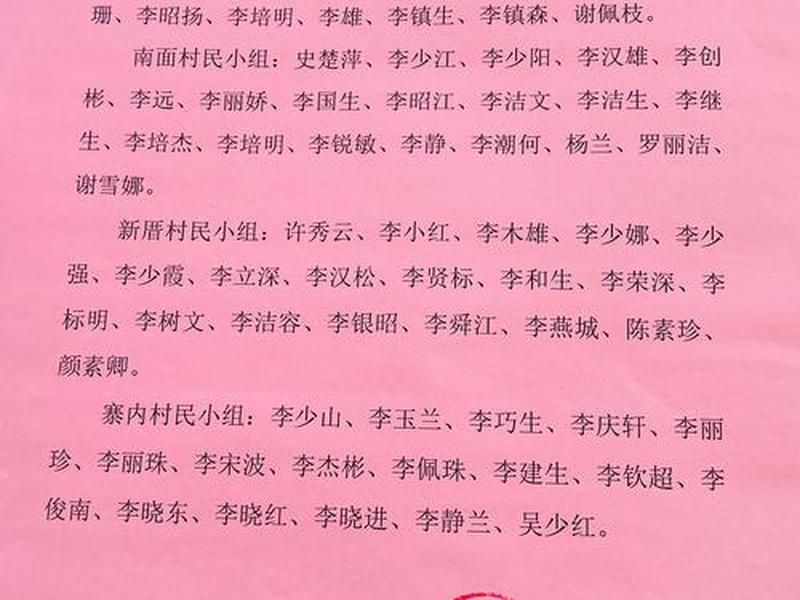 珊、李昭扬、李培明、李雄、李镇生、李镇森、谢佩枝。
南面村民小组：史楚萍、李少江、李少阳、李汉雄、李创
彬、李远、李丽娇、李国生、李昭江、李洁文、李洁生、李继
生、李培杰、李培明、李锐敏、李静、李潮何、杨兰、罗丽洁、
谢雪娜。
新厝村民小组：许秀云、李小红、李木雄、李少娜、李少
强、李少霞、李立深、李汉松、李贤标、李和生、李荣深、李
标明、李树文、李洁容、李银昭、李舜江、李燕城、陈素珍、
颜素卿。
寨内村民小组：李少山、李玉兰、李巧生、李庆轩、李丽
珍、李丽珠、李宋波、李杰彬、李佩珠、李建生、李钦超、李
俊南、李晓东、李晓红、李晓进、李静兰、吴少红。